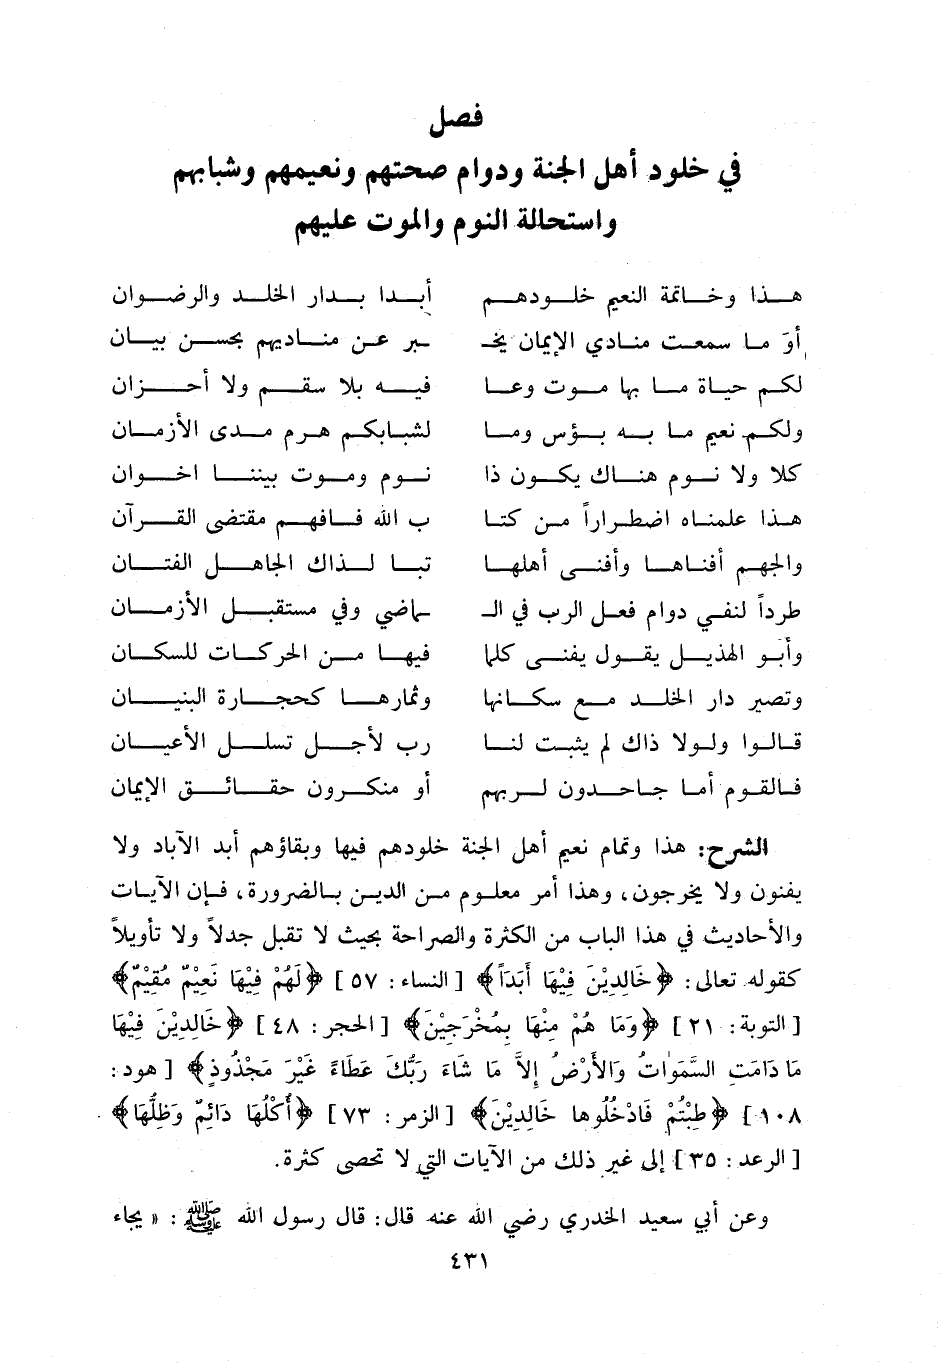 فصل
في خلود أهل الجنة ودوام صحتهم ونعيمهم وشبابهم
واستحالة النوم والموت عليهم
هذا وخاتمة النعيم خلودهم أبدا بدار الخلد والرضوان
أو ما سمعت منادي الإيمان يخـ ـبر عن مناديهم بحسن بيان
لكم حياة ما بها موت وعا فيه بلا سقم ولا أحزان
ولكم نعيم ما به بؤس وما لشبابكم هرم مدى الأزمان
كلا ولا نوم هناك يكون ذا نوم وموت بيننا اخوان
هذا علمناه اضطراراً من كتا ب الله فافهم مقتضى القرآن
والجهم أفناها وأفنى أهلها تبا لذاك الجاهل الفتان
طرداً لنفي دوام فعل الرب في الـ ـماضي وفي مستقبل الأزمان
وأبو الهذيل يقول يفنى كلما فيها من الحركات للسكان
وتصير دار الخلد مع سكانها وثمارها كحجارة البنيان
قالوا ولولا ذاك لم يثبت لنا رب لأجل تسلسل الأعيان
فالقوم أما جاحدون لربهم أو منكرون حقائق الإيمان
الشرح: هذا وتمام نعيم أهل الجنة خلودهم فيها وبقاؤهم أبد الآباد ولا
يفنون ولا يخرجون، وهذا أمر معلوم من الدين بالضرورة، فإن الآيات
والأحاديث في هذا الباب من الكثرة والصراحة بحيث لا تقبل جدلاً ولا تأويلاً
كقوله تعالى: ﴿خَالِدِيْنَ فِيْهَا أَبَدَاً﴾ [النساء: ٥٧] ﴿لَهُمْ فِيْهَا نَعِيْمٌ مُقِيْمٌ﴾
[التوبة: ٢١] ﴿وَمَا هُمْ مِنْهَا بِمُخْرَجِيْنَ﴾ [الحجر: ٤٨] ﴿خَالِدِيْنَ فِيْهَا
مَا دَامَتِ السَّمَوَاتُ وَالأَرْضُ إِلاَّ مَا شَاءَ رَبُّكَ عَطَاءً غَيْرَ مَجْذُوذٍ﴾ [هود:
١٠٨] ﴿طِبْتُمْ فَادْخُلُوها خَالِدِيْنَ﴾ [الزمر: ٧٣] ﴿أُكْلُهَا دَائِمٌ وَظِلُّهَا﴾
[الرعد: ٣٥] إلى غير ذلك من الآيات التي لا تحصى كثرة.
وعن أبي سعيد الخدري رضي الله عنه قال: قال رسول الله ﷺ: «يجاء
٤٣١